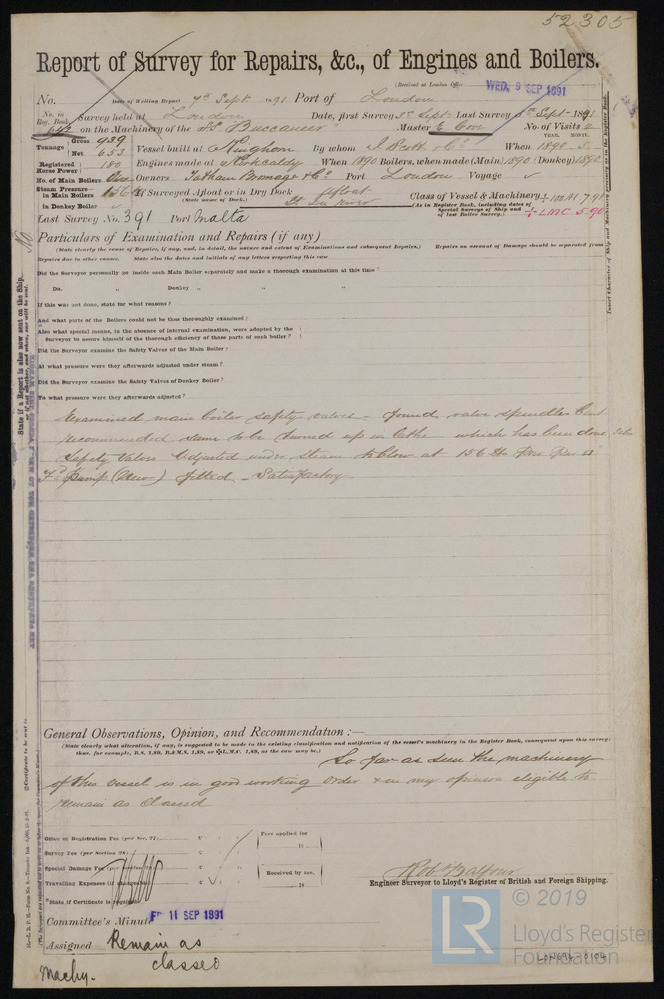 52305
Report of Survey for Repairs, &c., of Engines and Boilers.
(Received at London Office WED. 9 SEP 1891
No. Date of Writing Report 7th Sept. 1891 Port of London
No. in Reg. Book. Survey held at London Date, first Survey Last Survey Sept. 1891
on the Machinery of the SS Buccaneer Master E. No. of Visits 2
YEAR. MONTH.
Tonnage Gross 929 Net 653 Vessel built at Kinghorn By whom J. Scott & Co When 1890 . 5
Registered Horse Power 180 Engines made at Kirkcaldy When 1890 Boilers, when made (Main) 1890 (Donkey) 1890
No. of Main Boilers One Owners Tatham Bromage & Co Port London Voyage ✓
Steam Pressure in Main Boilers 156 If Surveyed Afloat or in Dry Dock Afloat Class of Vessel & Machinery 100 A1 7.91
in Donkey Boiler (State name of Dock.) (As in Register Book, including dates of Special Surveys of Ship and of last Boiler Survey.) LMC 5.90
Last Survey No. 391 Port Malta
Particulars of Examination and Repairs (if any)
(State clearly the cause of Repairs, if any, and, in detail, the nature and extent of Examinations and subsequent Repairs.) Repairs on account of Damage should be separated from
Repairs due to other causes. State also the dates and initials of any letters respecting this case
Did the Surveyor personally go inside each Main Boiler separately and make a thorough examination at this time?
Do. „ Donkey „ „ „
If this was not done, state for what reasons?
And what parts of the Boilers could not be thus thoroughly examined?
Also what special means, in the absence of internal examination, were adopted by the
Surveyor to assure himself of the thorough efficiency of those parts of each boiler?
Did the Surveyor examine the Safety Valves of the Main Boiler?
At what pressure were they afterwards adjusted under steam?
Did the Surveyor examine the Safety Valves of Donkey Boiler?
To what pressure were they afterwards adjusted?
Examined main boiler safety valves - found valve spindles bent
recommended same to be turned up in lathe which has been done
Safety Valves Adjusted under steam to blow at 156 lbs per
Fd Pump (New) fitted - Satisfactory
General Observations, Opinion, and Recommendation :—
(State clearly what alteration, if any, is suggested to be made in the existing classification and notification of the vessel's machinery in the Register Book, consequent upon this survey;
thus, for example, B.S. 1,89, B.&M.S. 1,89, or L.M.C. 1,89, as the case may be.)
So far as seen the machinery
of this vessel is in good working order & in my opinion eligible to
remain as classed
Office or Registration Fee (per Sec. 27) Fees applied for
Survey Fee (per Section 28)
Special Damage Fee Received by me,
Travelling Expenses (if
State if Certificate is required
Rob Balfour
Engineer Surveyor to Lloyd's Register of British and Foreign Shipping.
Committee's Minute FRI 11 SEP 1891
Assigned Remain as
classed
Machy.
State if a Report is also now sent on the Ship.
No
Insert Character of Ship and Machinery precisely as in the Register Book.
LR © 2019
Lloyd's Register
Foundation
LON696-0106